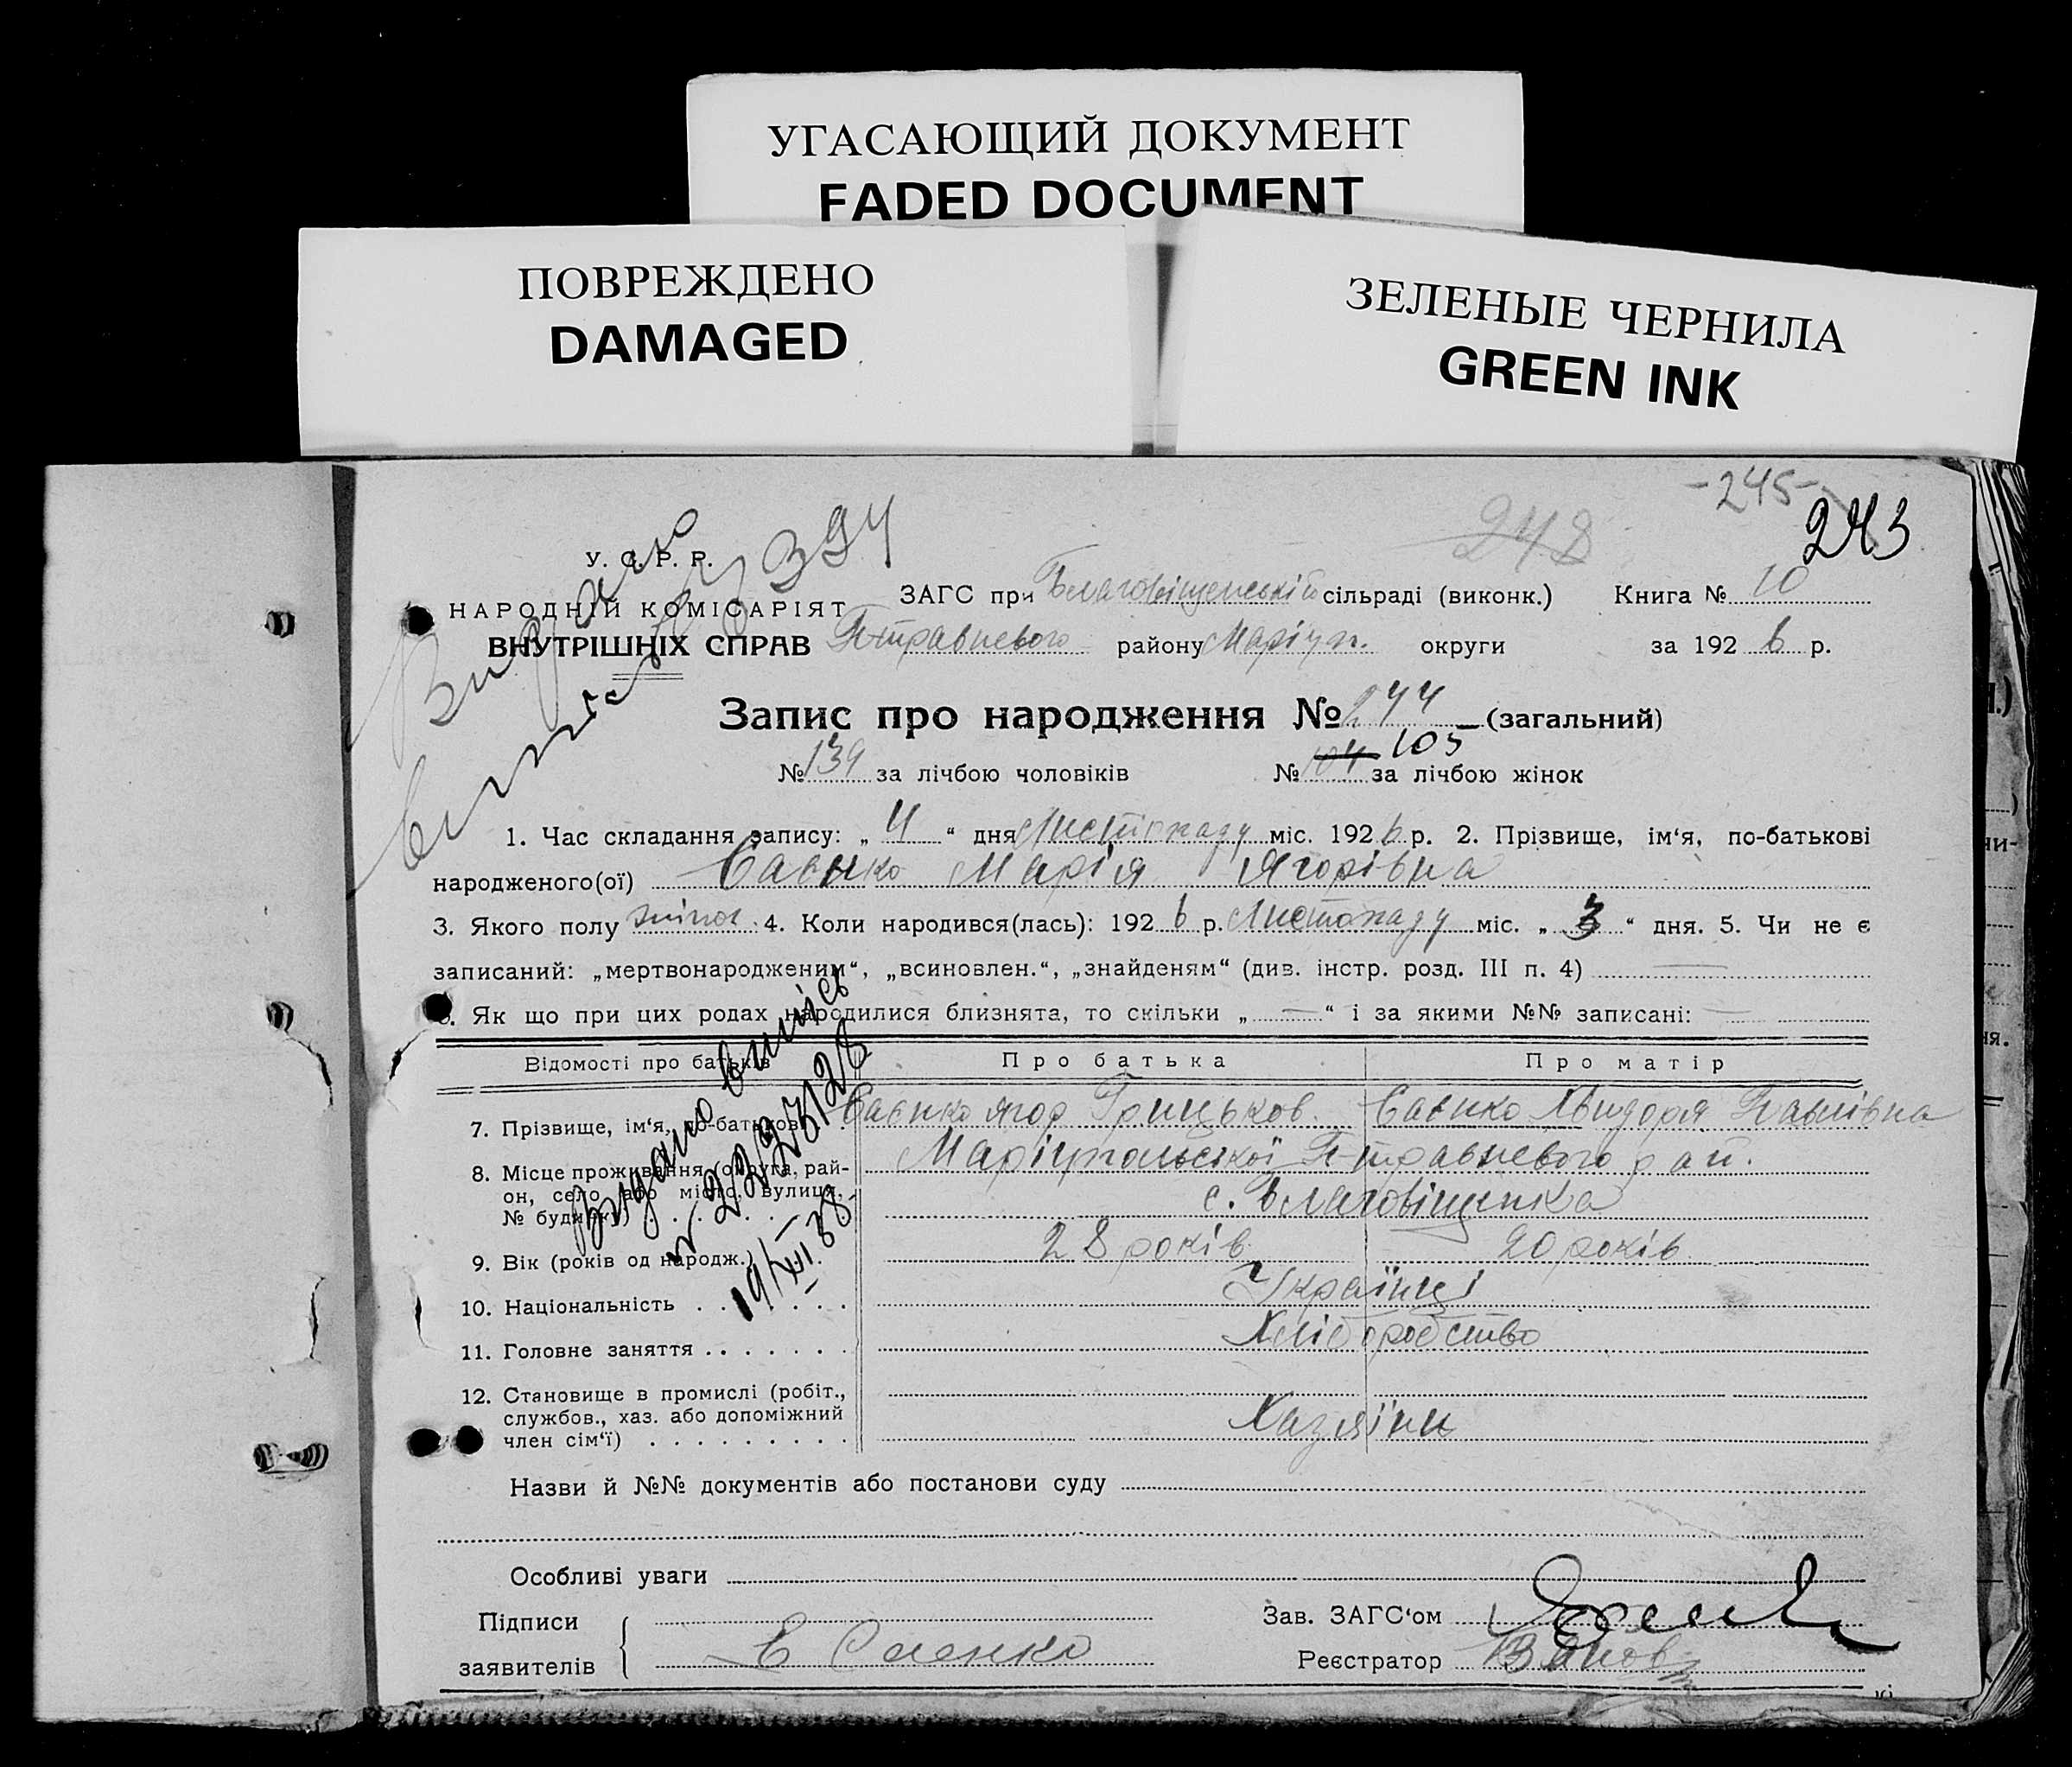 УГАСАЮЩИЙ ДОКУМЕНТ
FADED DOCUMENT
ПОВРЕЖДЕНО
DAMAGED
ЗЕЛЕНЫЕ ЧЕРНИЛА
GREEN INK
-245-
243
248
Видано
394
У. С. Р. Р.
НАРОДНІЙ КОМІСАРІЯТ
ВНУТРІШНІХ СПРАВ
ЗАГС при Благовіщенській сільраді (виконк.) Книга № 10
П-травневого району Маріуп. округи за 192 6 р.
Запис про народження № 244 (загальний)
105
№ 139 за лічбою чоловіків № 104 за лічбою жінок
1. Час складання запису: „ 4 “ дня Листопаду міс. 192 6 р. 2. Прізвище, ім‘я, по-батькові
народженого(ої) Саєнко Марія Ягорівна
3. Якого полу жіноч. 4. Коли народився(лась): 192 6 р. Листопаду міс. „ 3 “ дня. 5. Чи не є
записаний: „мертвонародженим“, „всиновлен.“, „знайденям“ (див. інстр. розд. III п. 4)
6. Як що при цих родах народилися близнята, то скільки „ — “ і за якими №№ записані: —
Видано випись
19/XII 38
Відомості про батьків Про батька Про матір
7. Прізвище, ім‘я, по-батькові Саєнко Ягор Грицьков. Саєнко Хвидоря Павлівна
8. Місце проживання (округа, рай- Маріупольської П-травневого рай.
он, село або місто, вулиця, с. Благовіщенка
№ будинку)
9. Вік (років од народж.) 28 років 20 років
10. Національність Українці
11. Головне заняття Хліборобство
12. Становище в промислі (робіт.,
службов., хаз. або допоміжний Хазяїни
член сім‘ї)
Назви й №№ документів або постанови суду
Особливі уваги
Підписи Зав. ЗАГС‘ом
заявителів Е Саенко Реєстратор